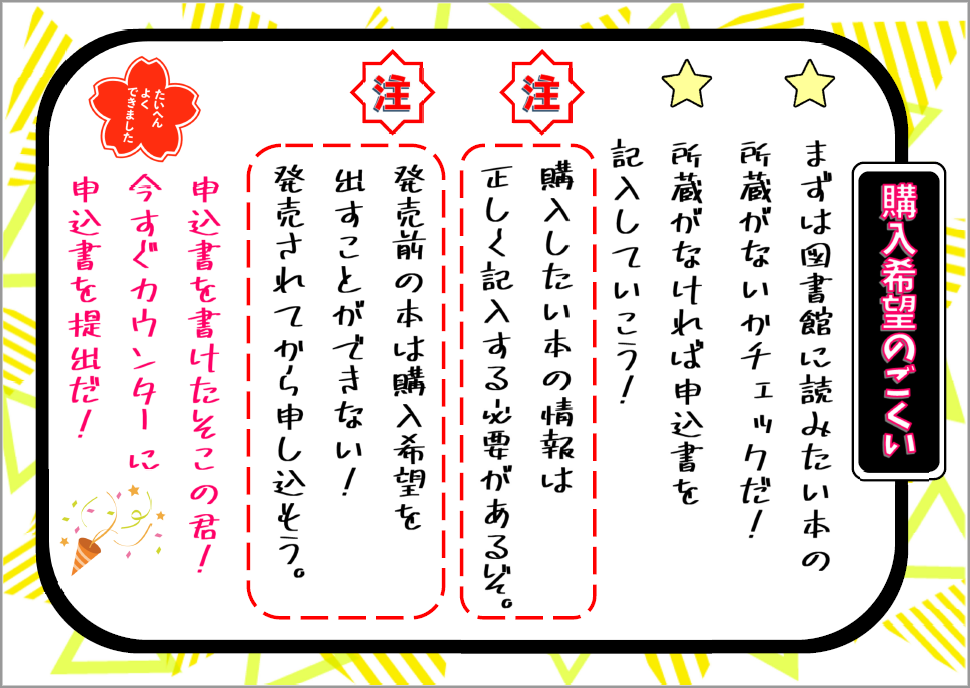 購入希望のごくい
まずは図書館に読みたい本の
所蔵がないかチェックだ！
所蔵がなければ申込書を
記入していこう！
注
購入したい本の情報は
正しく記入する必要があるぞ。
注
発売前の本は購入希望を
出すことができない！
発売されてから申し込もう。
たいへん
よく
できました
申込書を書けたそこの君！
今すぐカウンターに
申込書を提出だ！